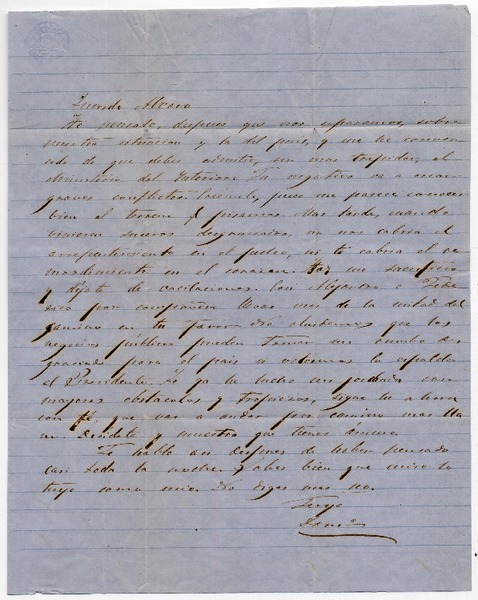 Querido Alvaro
He pensado, despues que nos separamos, sobre
nuestra situacion y la del pais, y me he conven
cido de que debes admitir, sin mas trepidar, el
Ministerio del Interior. Tu negativa va a crear
graves conflictos. Creemelo, pues me parece conocer
bien el terreno q pisamos. Mas tarde, cuando
vinieran sucesos desgraciados, no nos cabria el
arrepentimiento en el pecho, ni te cabria el re
mordimiento en el corazon. Haz un sacrificio
y déjate de vacilaciones. Con Alejandro e
por compañia llevas mas de la mitad del
camino en tu favor. No olvidemos que los
negocios públicos pueden tomar un rumbo des
graciado para el pais si volvemos la espalda
al Presidente. Yo ya he hecho una jornada con
mayores obstáculos y tropiezos, sigue tu ahora
con fé, que vas a andar por camino mas lla
no. Decídete y muestra que tienes ánimo.
Te hablo asi despues de haber pensado
casi toda la noche. Sabes bien que miro lo
tuyo como mio. No digas mas no.
Tuyo